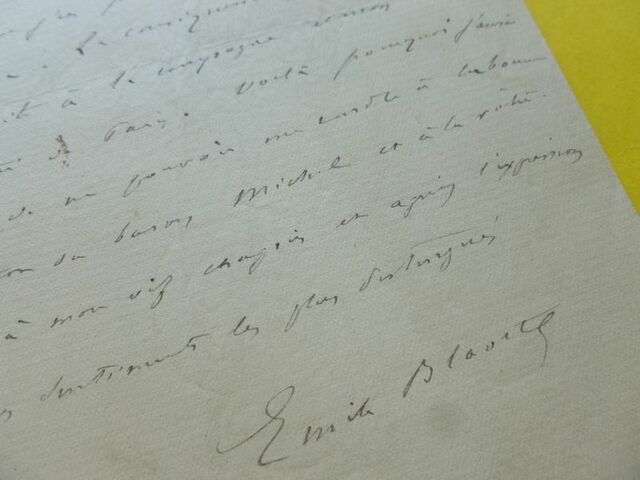 La consigne
à la campagne
Paris. Voilà pourquoi j'aurai
de ne pouvoir me rendre à la bonne
du baron Michel et à la vôtre.
à mon vif chagrin et agréez l'expression
sentiments les plus distingués
Emile Blavet